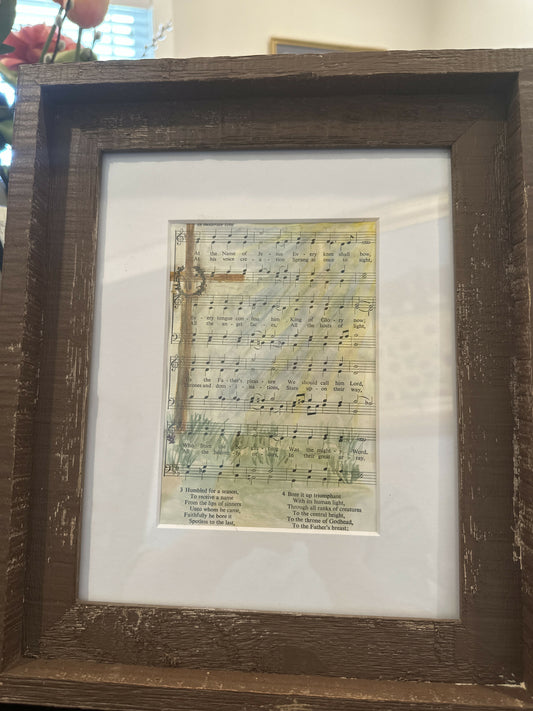 At the Name of Je - sus Ev - ery knee shall bow,
At his voice cre - a - tion Sprang at once to sight,
Ev - ery tongue con - fess him King of Glo - ry now;
All the an - gel fac - es, All the hosts of light,
'Tis the Fa - ther's pleas - ure We should call him Lord,
Thrones and dom - i - na - tions, Stars up - on their way,
Who from the be - gin - ning Was the might - y Word.
All the heavenly In their great ar - ray.
3 Humbled for a season,
To receive a name
From the lips of sinners
Unto whom he came,
Faithfully he bore it
Spotless to the last,
4 Bore it up triumphant
With its human light,
Through all ranks of creatures
To the central height,
To the throne of Godhead,
To the Father's breast;